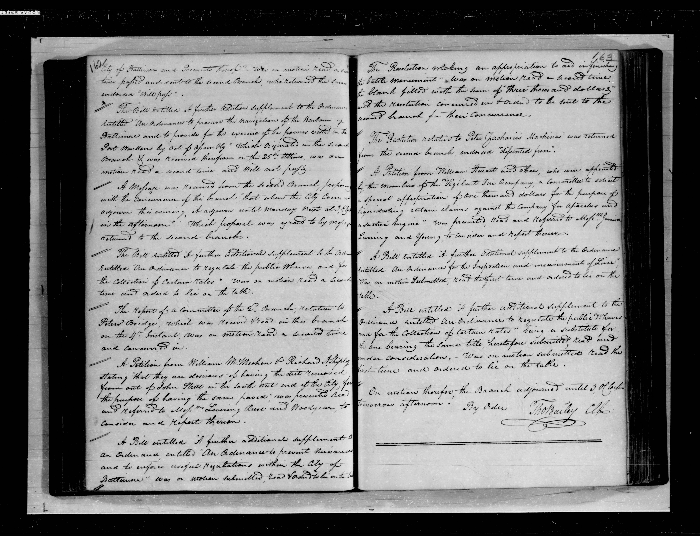 162
City of Baltimore and Personal thereof" Was on motion read a second
time passed and sent to the second Branch, who returned the same
endorsed "Will pass".
The Bill entitled "A further additional supplement to the Ordinance
entitled "An ordinance to preserve the navigation of the Harbour of
Baltimore and to provide for the exercise of the powers vested in the
Port Wardens by Act of Assembly" Which originated in the second
Branch & was received therefrom on the 25th Ultimo, was on
motion read a second time and Will not pass
A Message was received from the second Branch, proposing
with the concurrence of the branch that when the City Council
adjourn this evening, it adjourn until monday next at 3 Oclock
in the afternoon". Which proposal was agreed to by message
returned to the second branch.
The Bill entitled A further Additional supplement to the Ordinance
entitled An Ordinance to regulate the public Wharves and for
the Collection of Certain Rates" was on motion Read a second
time and ordered to lie on the table.
The report of a Committee of the 2nd Branch, relative to
Piters Bridge, which was received & read in this branch
on the 4th Instant, was on motion read a second time
and concurred in.
A Petition from William McMechen & Richard
stating that they are desirous of having the dirt removed
from out of John Street in the south west end of the City for
the purpose of having the same paved" was presented read
and referred to Messrs Lowering and Woodyear to
consider and report thereon.
A Bill entitled "A further additional supplement to
an Ordinance entitled An Ordinance to prevent nuisances
and to enforce useful regulations within the City of
Baltimore" was on motion submitted, read & ordered to lie on the table
163
The Resolution making an appropriation to aid in finishing
the battle monument - Was on motion read a second time
the blank filled with the sum of three thousand dollars
and the resolution concurred in & ordered to be sent to the
second branch for their concurrence.
The Resolution relative to Peter Zacharias was returned
from the second branch endorsed "dissented from".
A Petition from William Stewart and others, who were appointed
by the members of the Vigilant Fire Company a Committee to solicit
a special appropriation of two thousand dollars for the purpose of
liquidating certain claims against the Company for apparatus and
a suction engine - was presented read and referred to Messrs
Lowering and Young to consider and report thereon.
A Bill entitled A further Additional supplement to the Ordinance
entitled An Ordinance for the Inspection and measurement of Lime"
Was on motion submitted, read the first time and ordered to lie on the
table.
A Bill entitled "A further additional supplement to the
Ordinance entitled An Ordinance to regulate the public Wharves
and for the Collection of certain rates" being a substitute for
the one bearing the same title heretofore submitted, read and
under consideration, - Was on motion submitted read the
first time and ordered to lie on the table
On motion therefor the Branch adjourned until 3 O'Clock
tomorrow afternoon.
By Order
Thos Bailey Clk